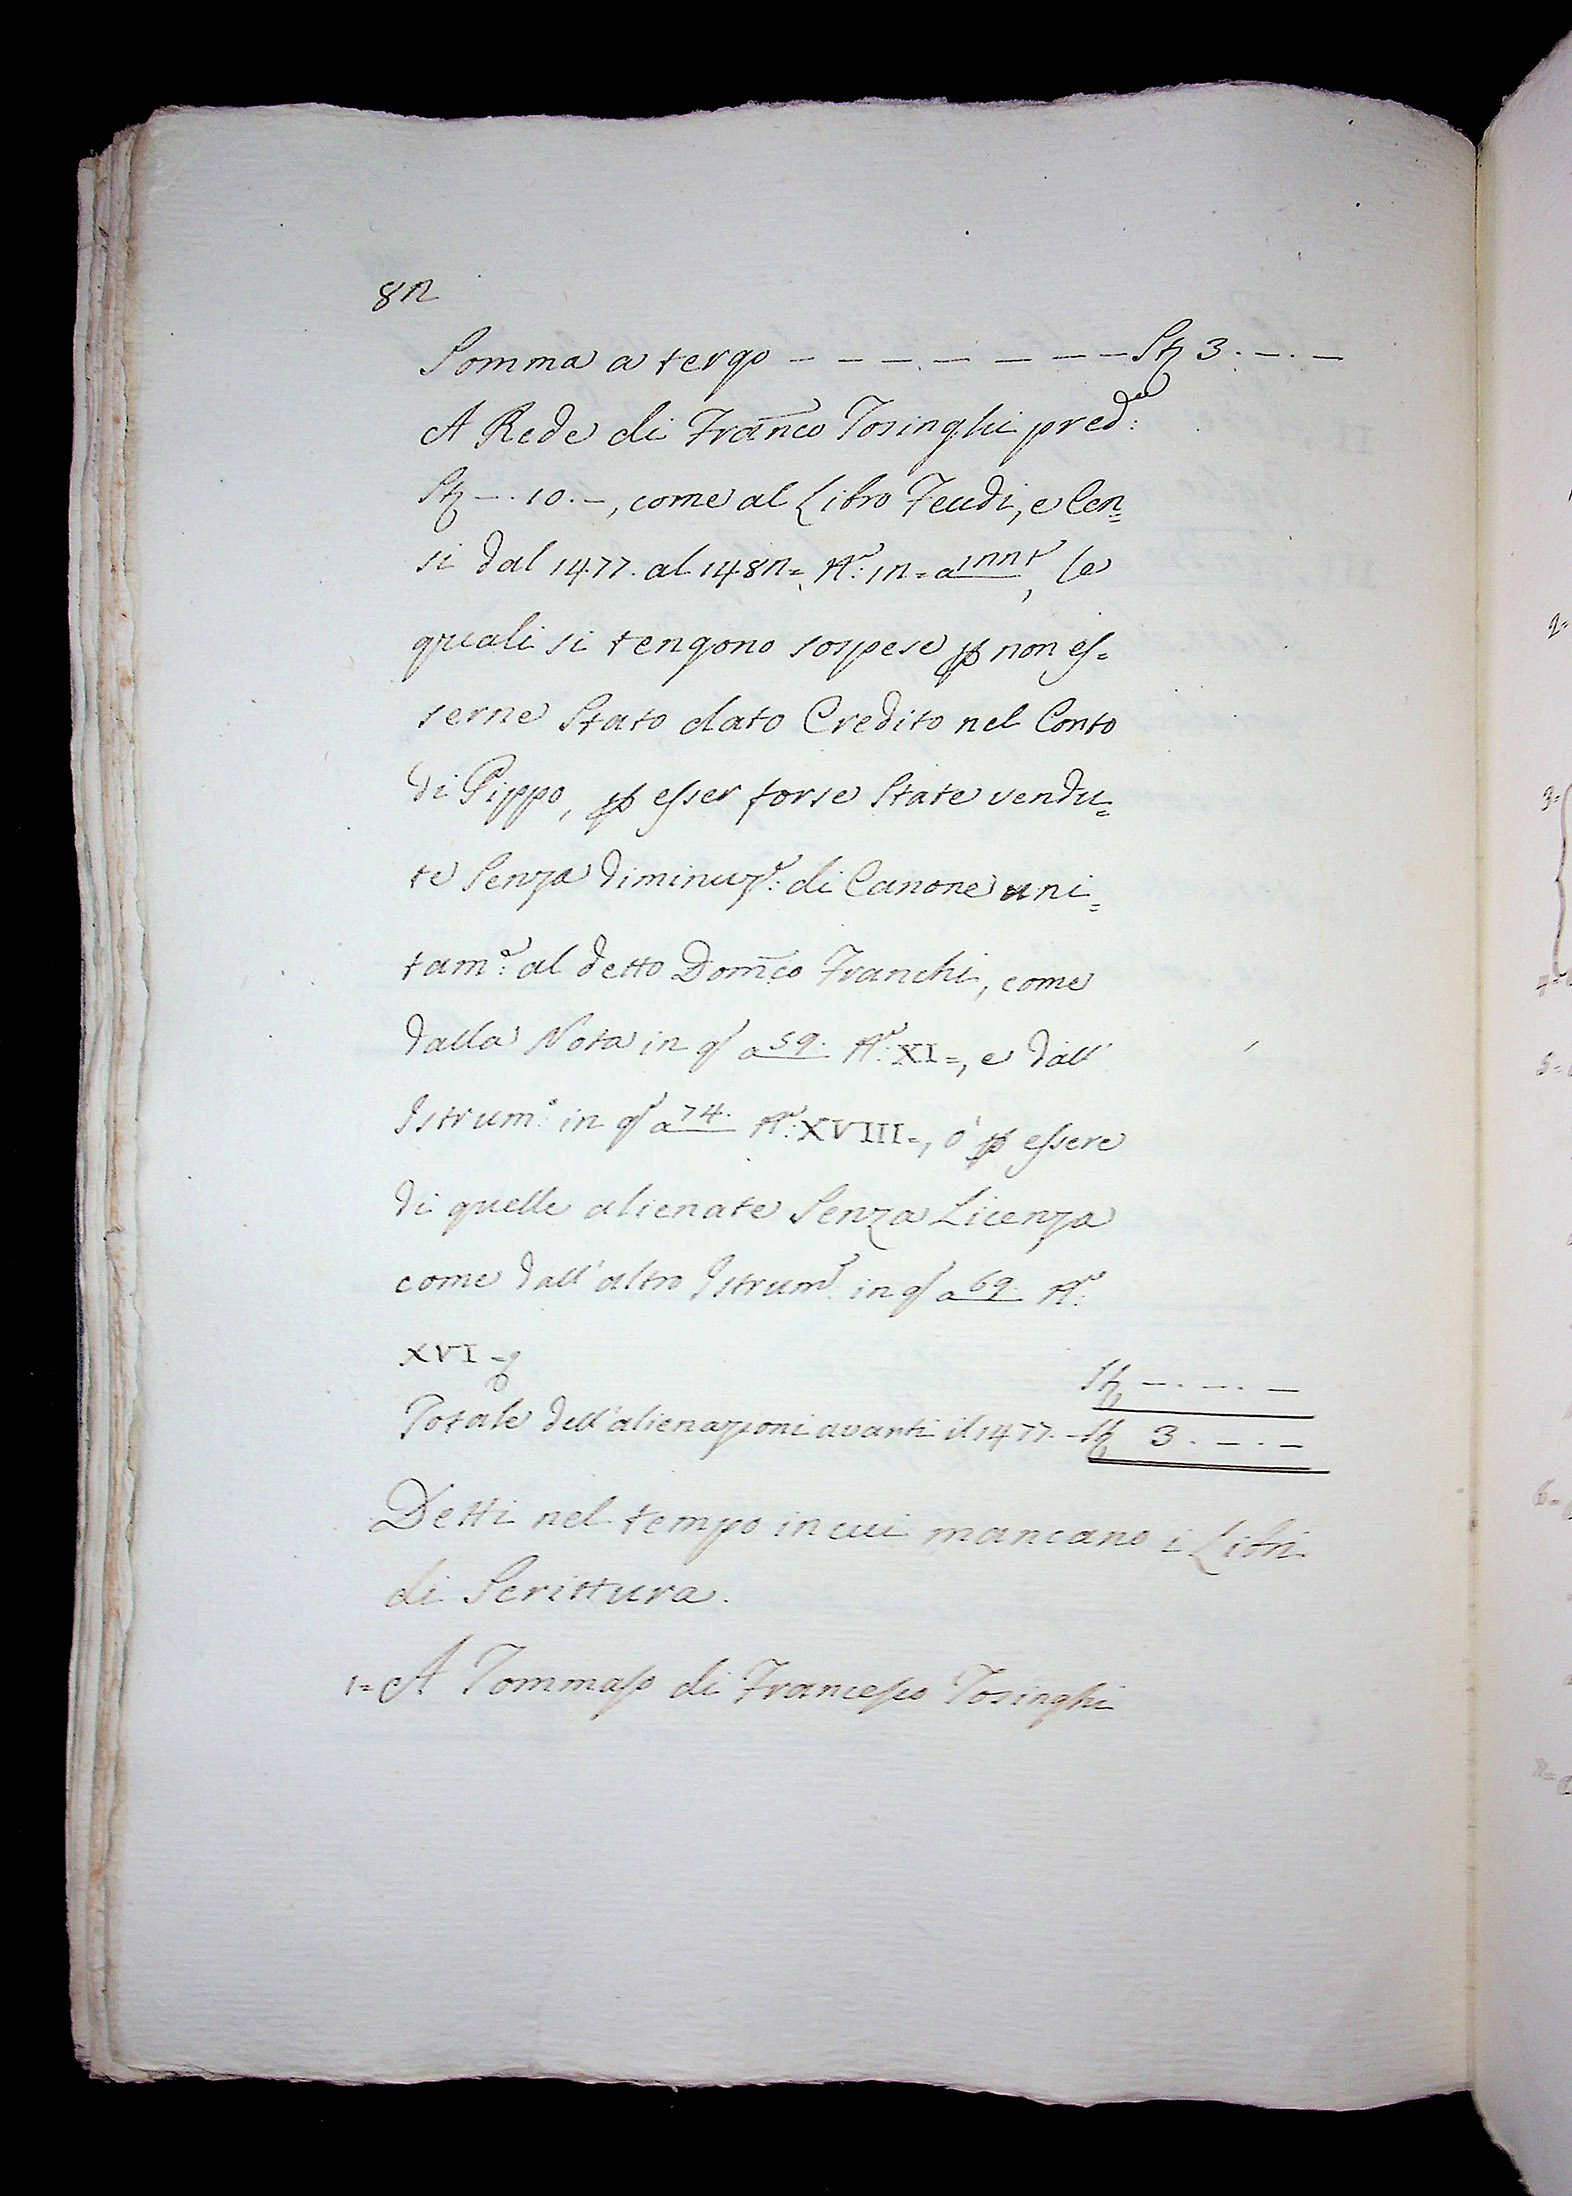 82
Somma a tergo - - - - - - - - St: 3. -. -
A Rede di Franco Tosinghi pred:a
St: -. 10. -, come al Libro Feudi, e Cen=
si dal 1477. al 1482=, N.o: 12= a 122t, le
quali si tengono sospese p non es=
serne Stato dato Credito nel Conto
di Pippo, p esser forse State vendu=
te Senza diminuz.e: di Canone uni=
tam.e: al detto Domco Franchi, come
dalla Nota in q.o a 59. N.o: XI=, e dall'
Istrum.o: in q.o a 74. N.o: XVIII=, ò p essere
di quelle alienate Senza Licenza
come dall'altro Istrum.o in q.o a 69. N.o:
XVI=
St: -. -. -
Totale dell'alienazioni avanti il 1477. - St: 3. -. -
Detti nel tempo in cui mancano i Libri
di Scrittura.
1= A Tommaso di Francesco Tosinghi